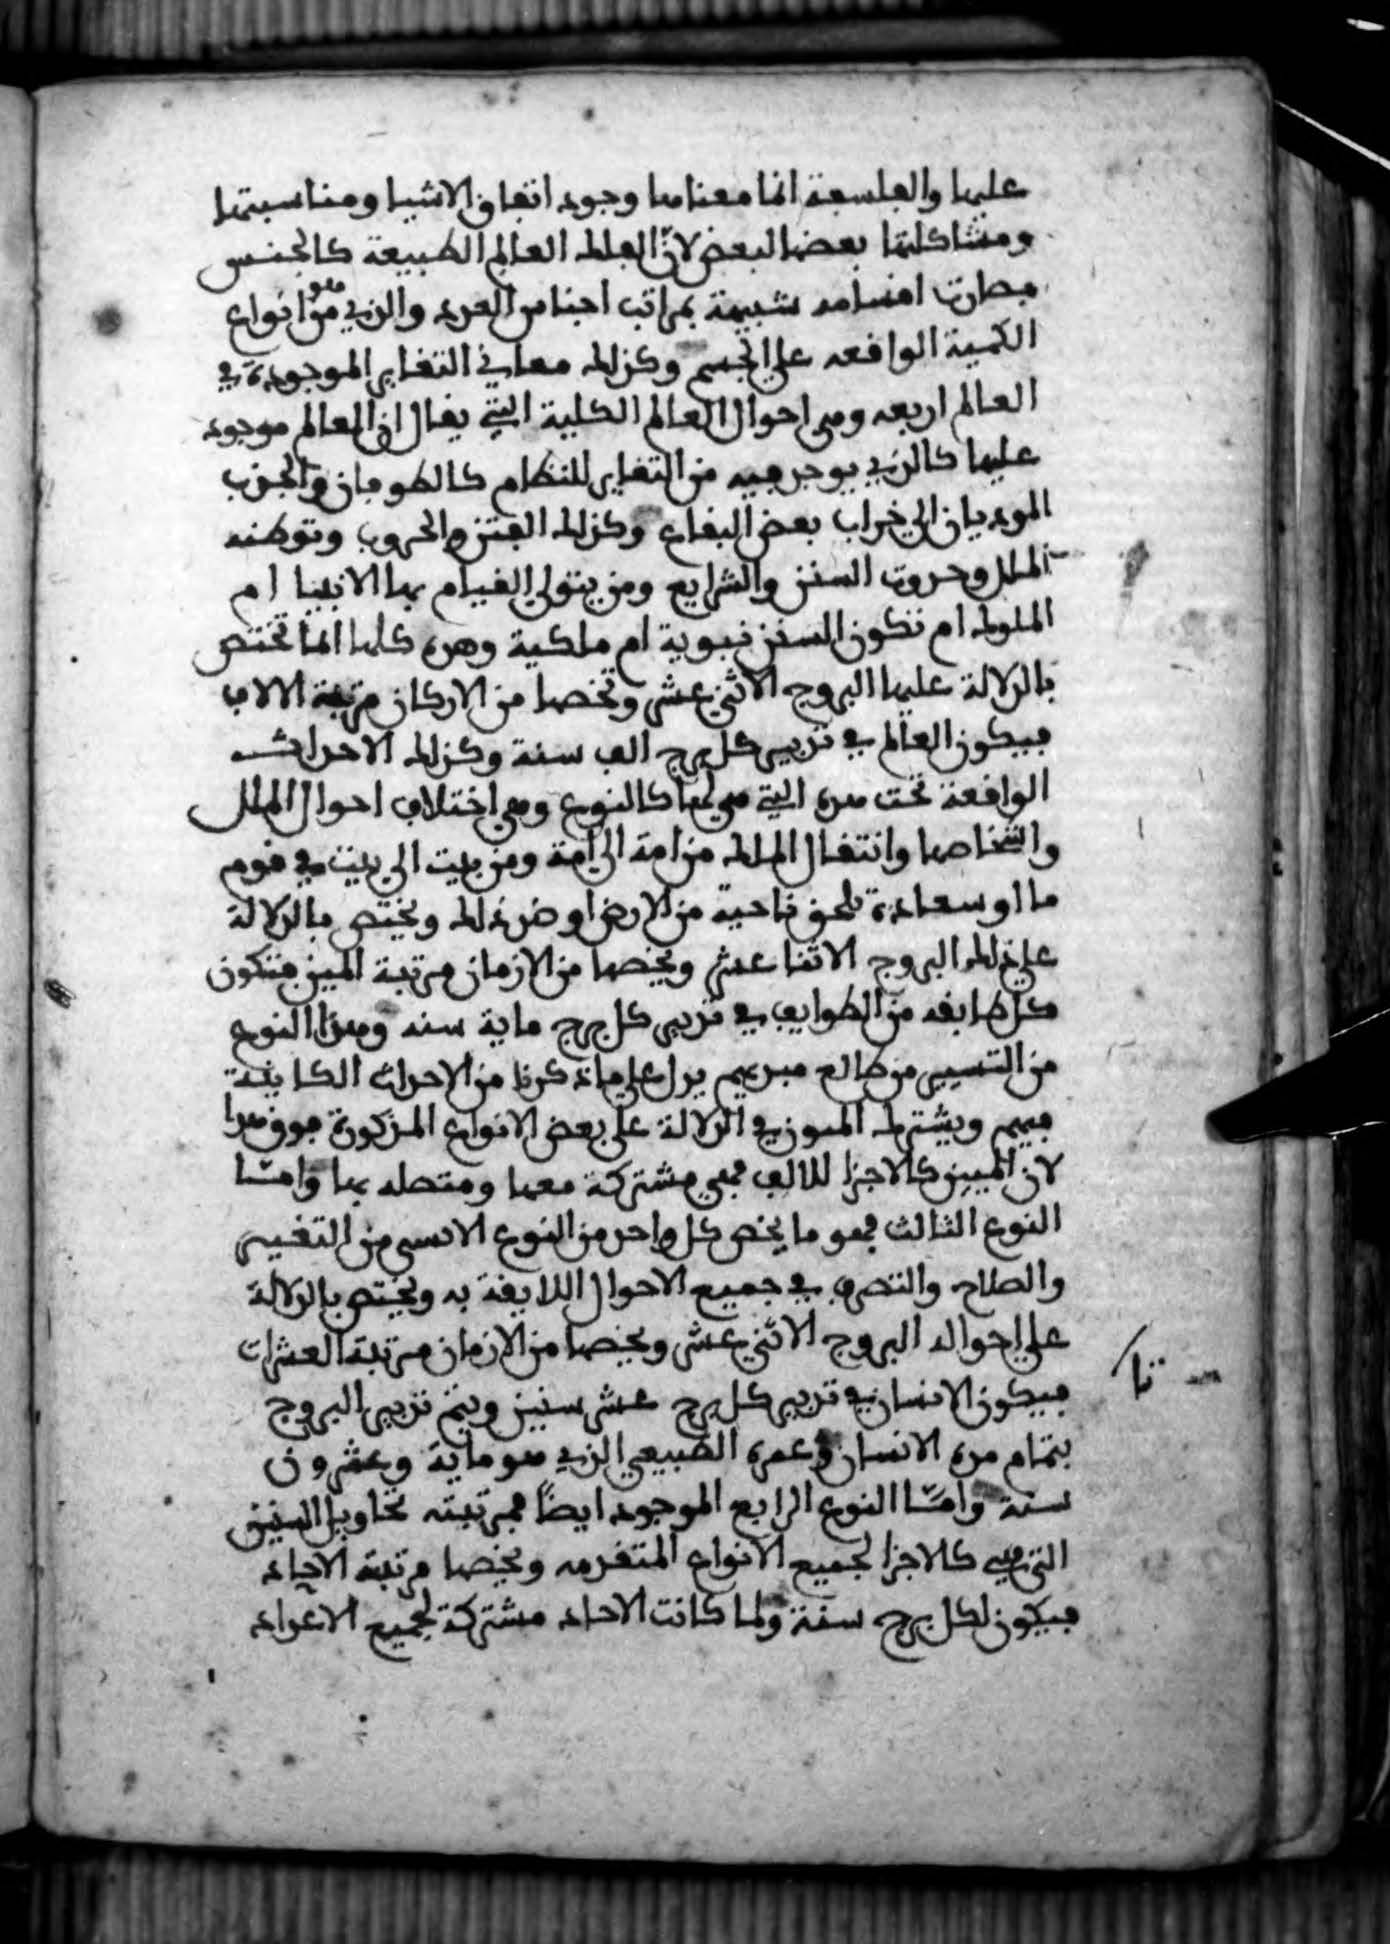 عليها والفلسفة انما معناها وجود اتفاق الاشيا ومناسبتها
ومشاكلتها بعضها لبعض لانّ الفلك العالم الطبيعة كالجنس
فصارت اقسامه شبيهة بمراتب اجناس العدد والذي هو من انواع
الكمية الواقعه على الجسم وكذلك معاني التغاير الموجودة في
العالم اربعه وهي احوال العالم الكلية التي يقال ان العالم موجود
عليها كالذي يوجد فيه من التغاير للنظام كالطوفان والجدب
الموديان الى خراب بعض البقاع وكذلك الفتن والحروب وتوطنه
الملل وحدوث السنن والشرايع ومن يتولى القيام بها الانبيا ام
الملوك ام تكون السنن نبوية ام ملكية وهذه كلها انما تختص
بالدلالة عليها البروج الاثني عشر وتخصها من الاركان مرتبة الالاف
فيكون العالم في تدبير كل برج الف سنة وكذلك الاحداث
الواقعة تحت هذه التي هي لها كالنوع وهي اختلاف احوال الملل
واشخاصها وانتقال الملك من امة الى امة ومن بيت الى بيت في قوم
ما او سعادة تلحق ناحية من الارض او ضد ذلك ويختص بالدلالة
على ذلك البروج الاثنا عشر ويخصها من الازمان مرتبة الميين فتكون
كل طايفه من الطوايف في تدبير كل برج ماية سنه وهذا النوع
من التسيير من طالع مبديهم يدل على ما ذكرنا من الاحداث الكاينة
فيهم ويشترك الميون في الدلالة على بعض الانواع المذكورة فوق هذا
لان الميين كالاجزا للالف فهي مشتركة معها ومتصله بها وامّا
النوع الثالث فهو ما يخص كل واحد من النوع الانسي من التغيير
والصلاح والتصرف في جميع الاحوال اللايقة به ويختص بالدلالة
على احواله البروج الاثني عشر ويخصها من الازمان مرتبة العشرات
فيكون الانسان في تدبير كل برج عشر سنين ويتم تدبير البروج
بتمام مدة الانسان وعمره الطبيعي الذي هو ماية وعشرون
سنة وامّا النوع الرابع الموجود ايضاً فمرتبته تحاويل السنين
التي هي كالاجزا لجميع الانواع المتقدمه ويخصها مرتبة الاحاد
فيكون لكل برج سنة ولما كانت الاحاد مشتركة لجميع الاعداد